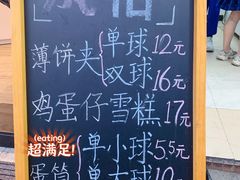 薄饼夹 单球 12元
双球 16元
鸡蛋仔雪糕 17元
(eating)
超满足!
单小球 5.5元
蛋筒 单大球 10